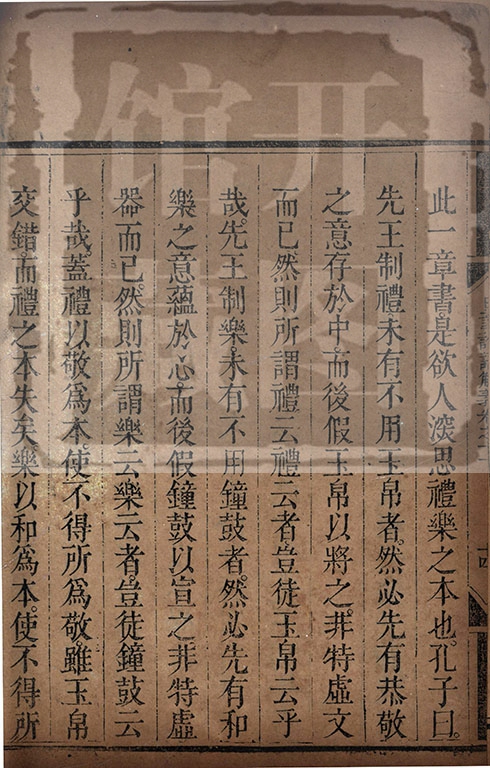 此一章書是欲人深思禮樂之本也。孔子曰。
先王制禮。未有不用玉帛者。然必先有恭敬
之意存於中。而後假玉帛以將之。非特虛文
而已。然則所謂禮云禮云者。豈徒玉帛云乎
哉。先王制樂。未有不用鐘鼓者。然必先有和
樂之意蘊於心。而後假鐘鼓以宣之。非特虛
器而已。然則所謂樂云樂云者。豈徒鐘鼓云
乎哉。蓋禮以敬爲本。使不得所爲敬。雖玉帛
交錯。而禮之本失矣。樂以和爲本。使不得所